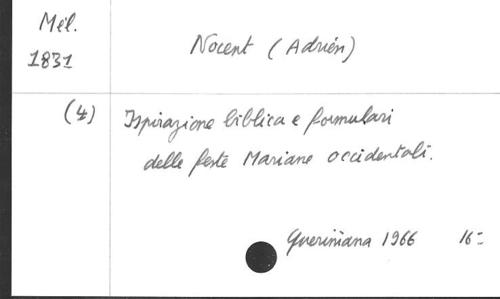 Mél.
1831
Nocent (Adrien)
(4) Ispirazione biblica e formulari
delle feste Mariane occidentali.
Queriniana 1966 16=